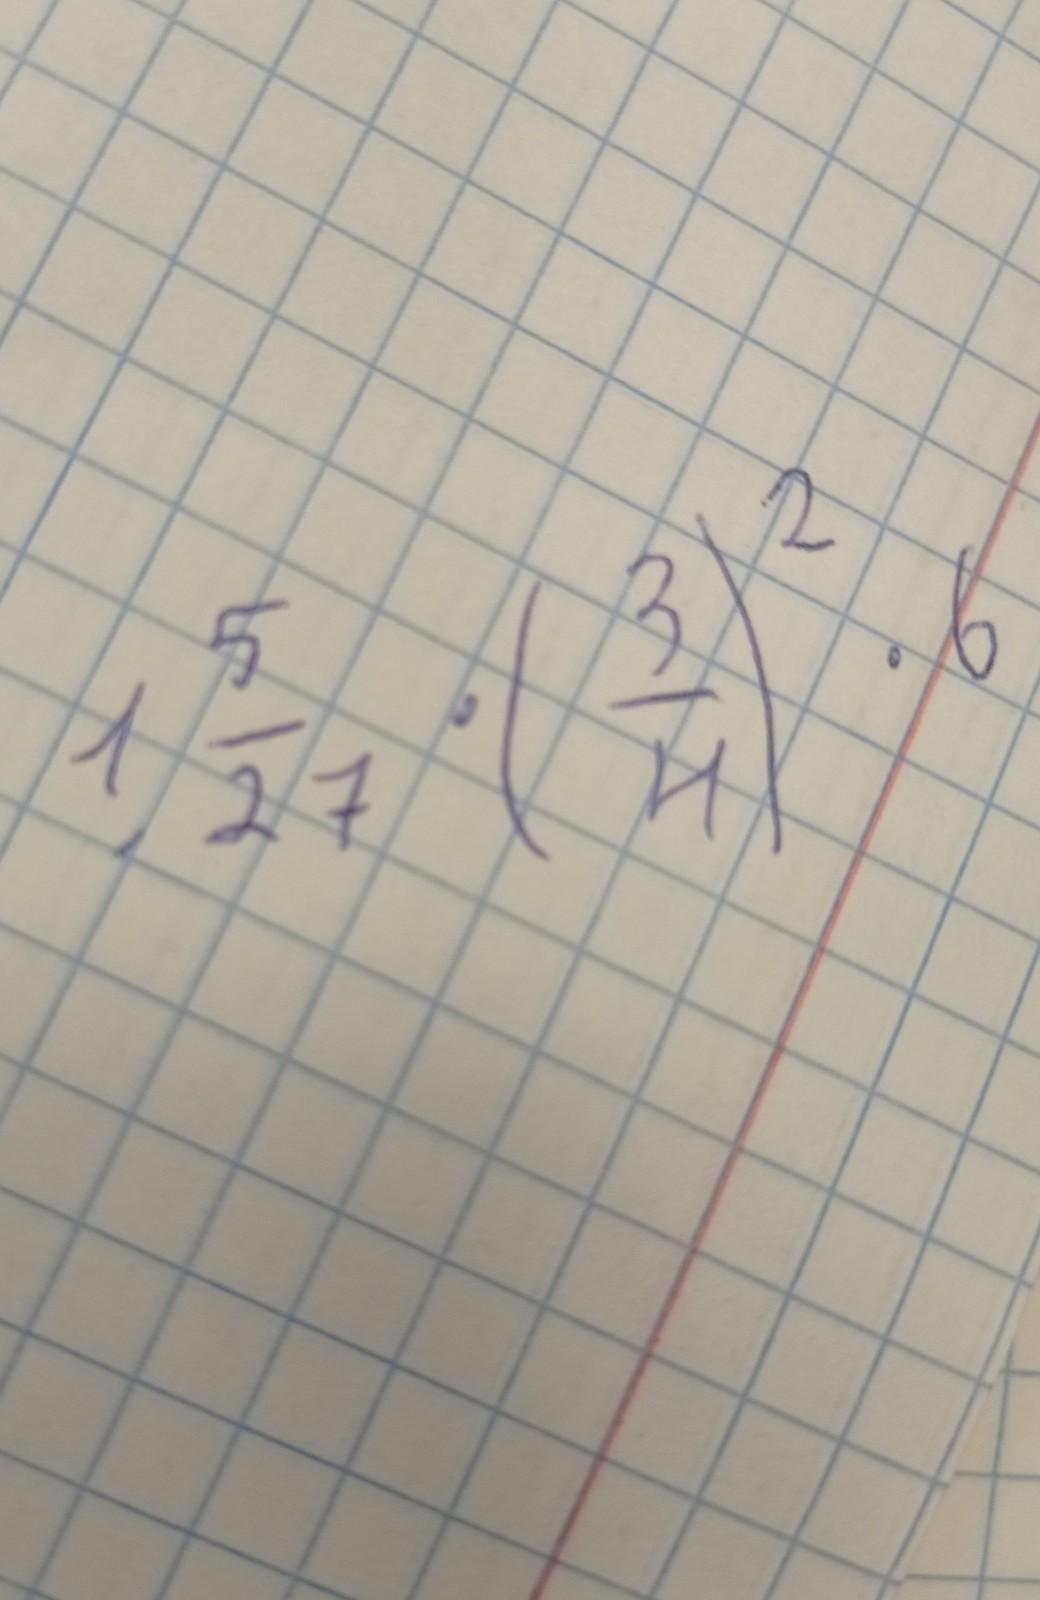 1 5/27 · (3/4)² · 6